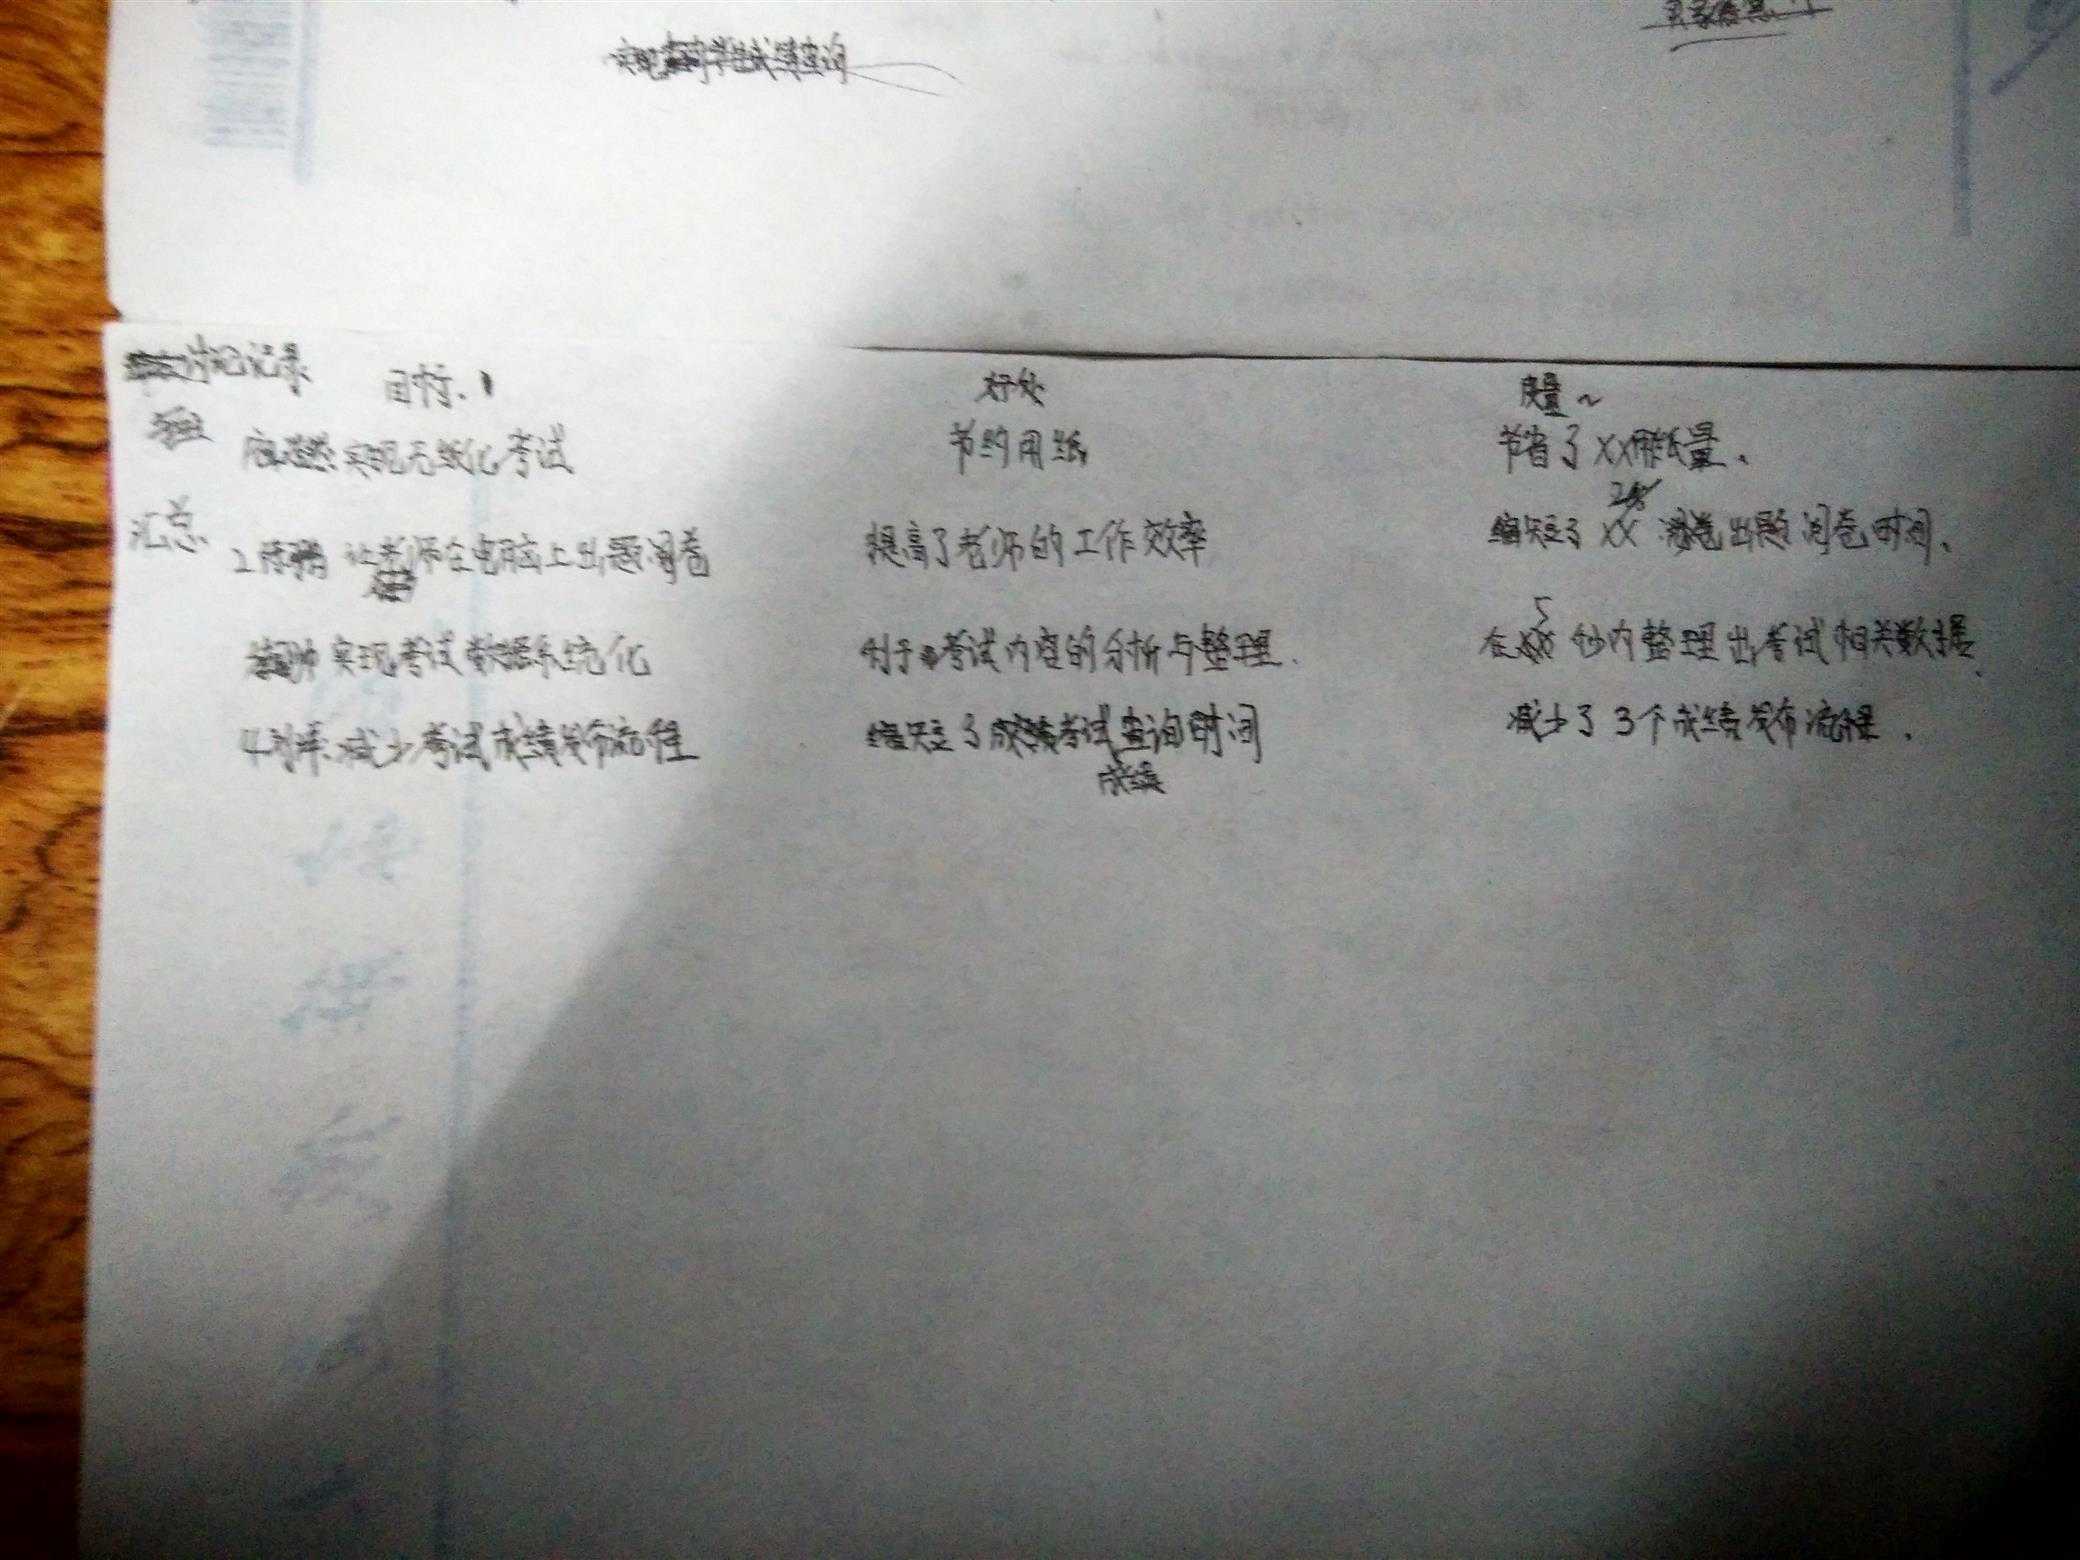 实现学生成绩查询
讨论记录 目标、 好处 度量~
实现无纸化考试 节约用纸 节省了XX用纸量、
汇总 2 让老师在电脑上出题阅卷 提高了老师的工作效率 缩短了XX 出题阅卷时间、
实现考试数据系统化 利于考试内容的分析与整理. 在 5 秒内整理出考试相关数据、
4 减少考试成绩发布流程 缩短了考试成绩查询时间 减少了3个成绩发布流程.